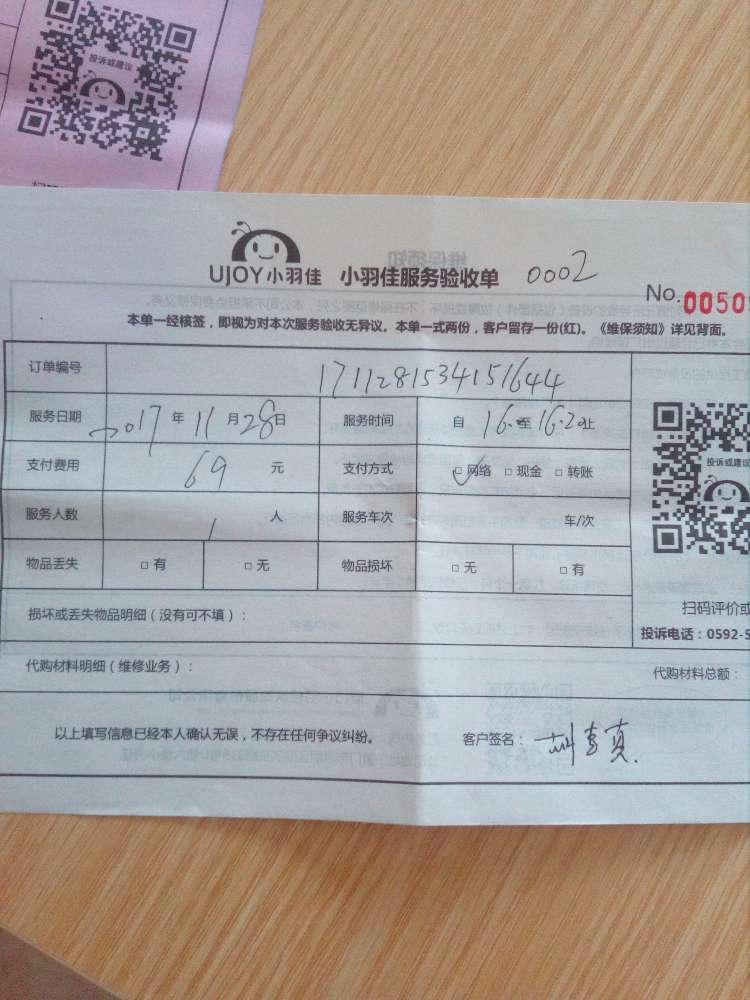 投诉或建议
UJOY小羽佳 小羽佳服务验收单 0002
No.0050
本单一经核签，即视为对本次服务验收无异议。本单一式两份，客户留存一份(红)。《维保须知》详见背面。
订单编号 1711281534151644
服务日期 2017年11月28日 服务时间 自16:至16:20止
支付费用 69元 支付方式 ☑网络 □现金 □转账
投诉或建议
服务人数 1人 服务车次 车/次
物品丢失 □有 □无 物品损坏 □无 □有
扫码评价或
损坏或丢失物品明细（没有可不填）：
投诉电话：0592-5
代购材料明细（维修业务）： 代购材料总额：
以上填写信息已经本人确认无误，不存在任何争议纠纷。 客户签名：